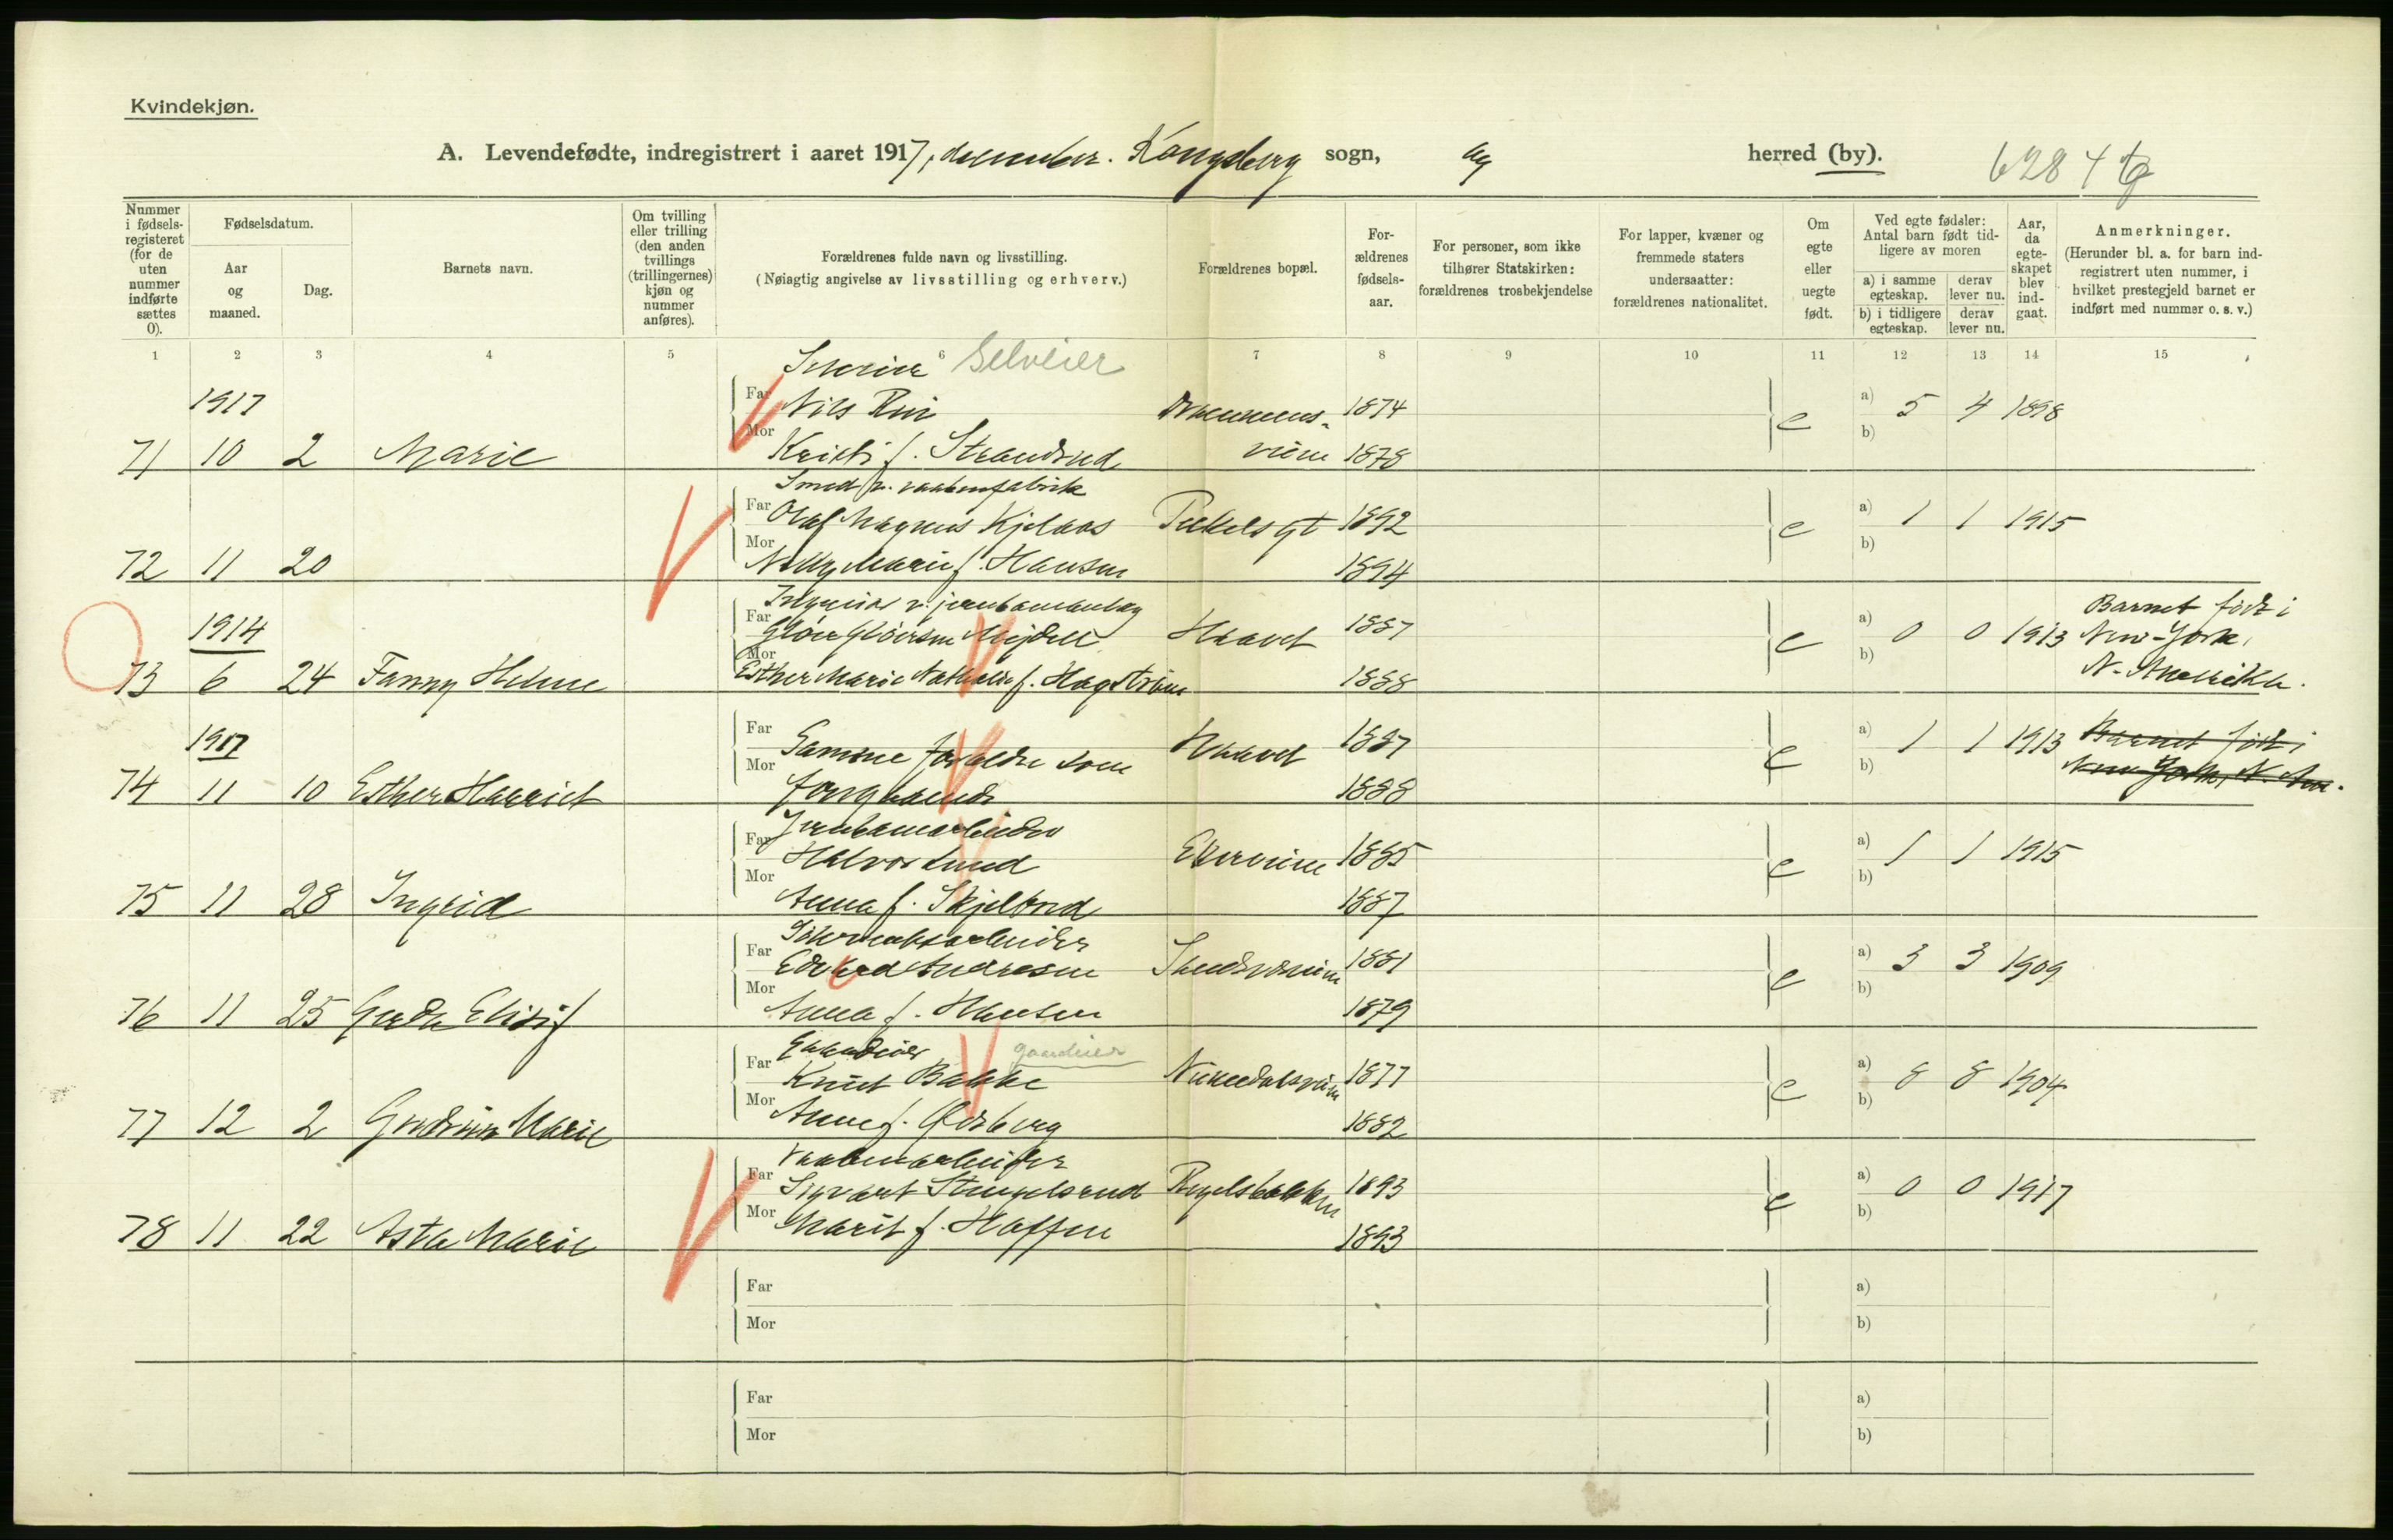 Kvindekjøn.
A. Levendefødte, indregistrert i aaret 1917, december. Kongsberg sogn, og herred (by).
6284
Nummer i fødsels-registeret (for de uten nummer indførte sættes 0).
Fødselsdatum.
Aar og maaned.
Dag.
Barnets navn.
Om tvilling eller trilling (den anden tvillings (trillingernes) kjøn og nummer anføres).
Forældrenes fulde navn og livsstilling.
(Nøiagtig angivelse av livsstilling og erhverv.)
Forældrenes bopæl.
For-ældrenes fødsels-aar.
For personer, som ikke tilhører Statskirken: forældrenes trosbekjendelse
For lapper, kvæner og fremmede staters undersaatter: forældrenes nationalitet.
Om egte eller uegte født.
Ved egte fødsler: Antal barn født tid-ligere av moren
a) i samme egteskap.
derav lever nu.
b) i tidligere egteskap.
derav lever nu.
Aar, da egte-skapet blev ind-gaat.
Anmerkninger.
(Herunder bl. a. for barn ind-registrert uten nummer, i hvilket prestegjeld barnet er indført med nummer o. s. v.)
1 2 3 4 5 6 7 8 9 10 11 12 13 14 15
Selveier
1917
Far Nils 1874 a) 5 4 1898
71 10 2 Marie
Mor Kristi f. Strandrud 1878 e b)
Smed v. vaabenfabrik
Far Olaf Magnus Kjelaas 1892 a) 1 1 1915
72 11 20
Mor Nelly Marie f. Hansen 1894 e b)
Ingeniør v. jernbaneanlæg
1914
Far Gløersen Mejdell 1887 a) 0 0 1913
Barnet født i New-York, N-Amerika.
73 6 24 Fanny Helene
Mor Esther Marie Nathalie f. Hagström 1888 e b)
1917
Far Mor Samme forældre som forgaaende 1887 a) 1 1 1913
Barnet født i New-York, N. Am.
74 11 10 Esther Harriet 1888 e b)
Jernbanearbeider
Far Halvor Lund 1885 a) 1 1 1915
75 11 28 Ingrid
Mor Anna f. Skjelbred 1887 e b)
Far Edvard Andresen 1881 a) 3 3 1909
76 11 25 Gerda Elisif
Mor Anna f. Hansen 1879 e b)
Gaardeier gaardeier
Far Knut Bakke Numedalsveien 1877 a) 8 8 1904
77 12 2 Gudrun Marie
Mor Anne f. 1882 e b)
Vaabenarbeider
Far Sigvart Stengelsrud 1893 a) 0 0 1917
78 11 22 Asta Marie
Mor Marit f. Hoffen 1893 e b)
Far a)
Mor b)
Far a)
Mor b)